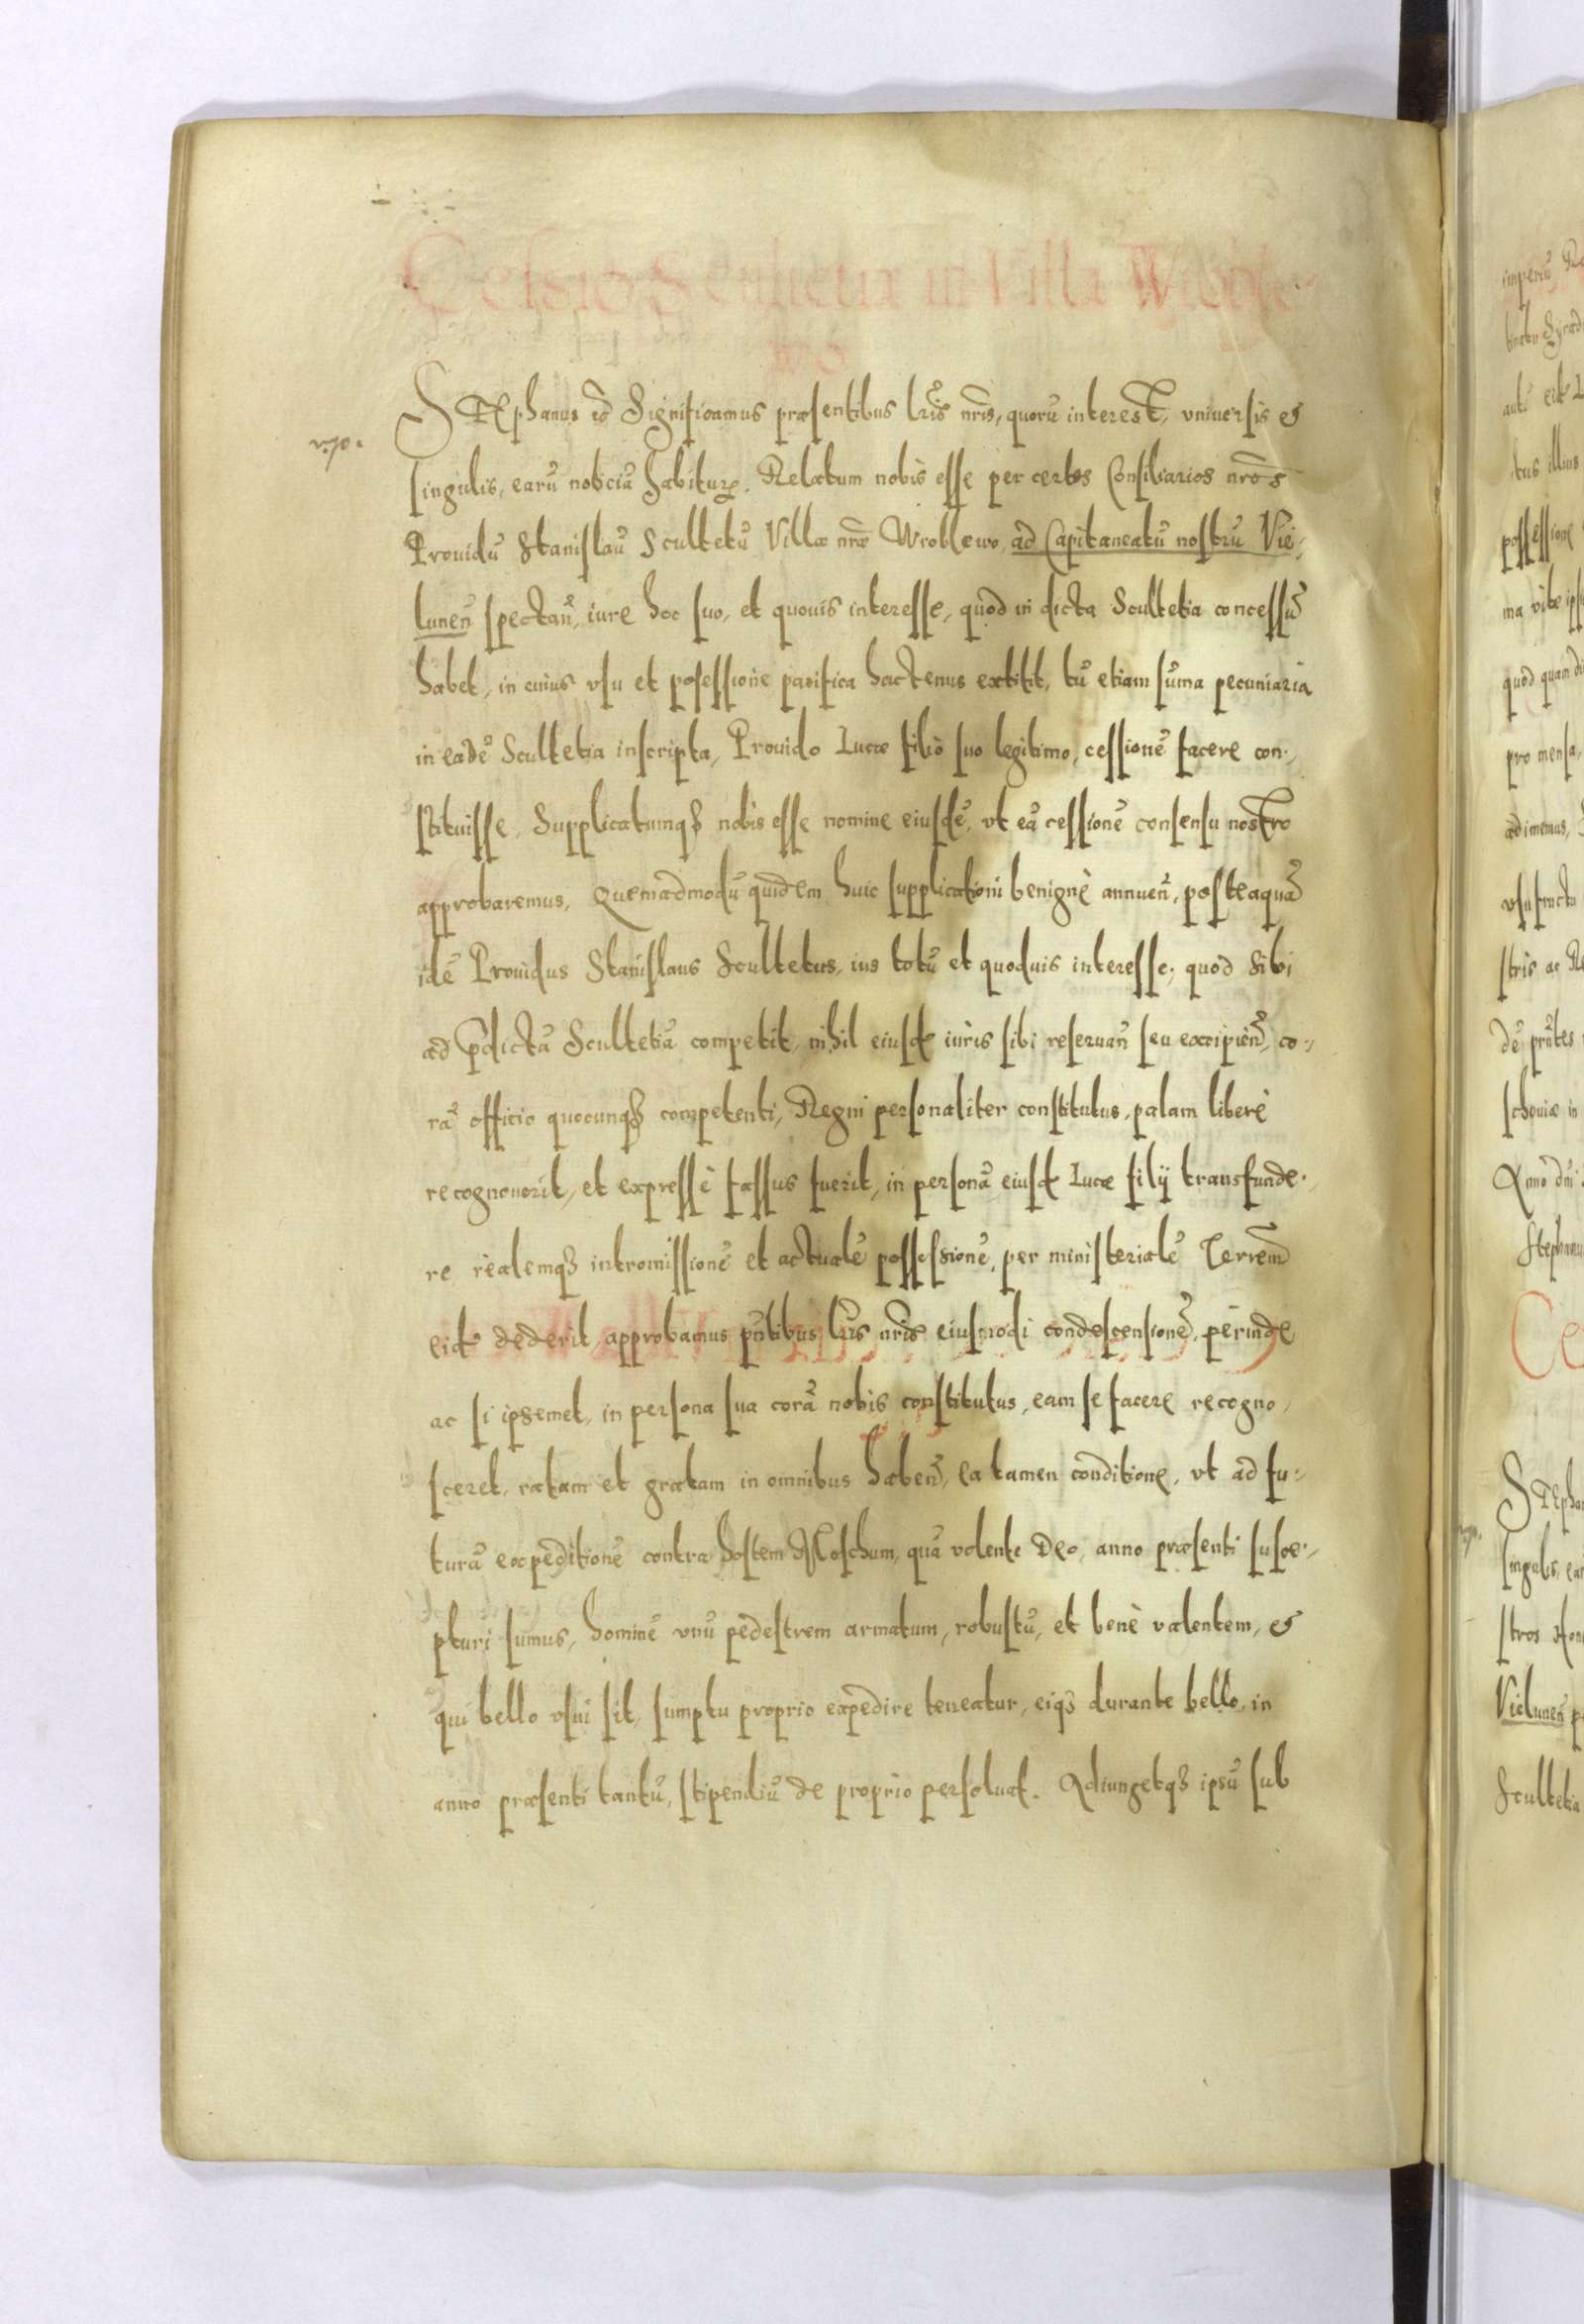 Cessio Scultetiæ in Villa Wroble
wo
STEphanus &c Significamus præsentibus lr̃is nr̃is, quorũ interest, vniuersis et
singulis, earũ noticiã habituꝝ. Relatum nobis esse per certos Consiliarios nr̃os
Prouidũ Stanislaũ Scultetũ Villæ nr̃æ Wroblewo ad Capitaneatũ nostrũ Vie-
luneñ spectañ, iure hoc suo, et quouis interesse, quod in dicta Scultetia concessũ
habet, in cuius vsu et posessione pacifica hactenus extitit, tũ etiam sũma pecuniaria
in eadẽ Scultetia inscripta, Prouido Lucæ filio suo legitimo, cessionẽ facere con-
stituisse. Supplicatumqꝫ nobis esse nomine eiusdẽ, vt eã cessionẽ consensu nostro
approbaremus, Quemadmodũ quidem huic supplicationi benignè annueñ, posteaquã
idẽ Prouidus Stanislaus Scultetus, ius totũ et quoduis interesse, quod sibi
ad p̃dictã Scultetiã competit, nihil eiusd iuris sibi reseruañ seu excipieñ, co-
rã officio quocunqꝫ competenti, Regni personaliter constitutus, palam liberè
recognouerit, et expressè fassus fuerit, in personã eiusd Lucæ filij transfunde-
re realemqꝫ intromissionẽ et actualẽ possessionẽ, per ministerialẽ Terreñ
eid dederit, approbamus pñtibus lr̃is nr̃is eiusmodi condescensionẽ, perinde
ac si ipsemet, in persona sua corã nobis constitutus, eam se facere recogno-
sceret, ratam et gratam in omnibus habeñ, ea tamen conditione, vt ad fu-
turã expeditionẽ contra hostem Moschum, quã volente Deo, anno præsenti susce-
pturi sumus, hominẽ vnũ pedestrem armatum, robustũ, et benè valentem, et
qui bello vsui sit, sumptu proprio expedire teneatur, eiqꝫ durante bello, in
anno præsenti tantũ, stipendiũ de proprio persoluat. Adiungetqꝫ ipsũ sub